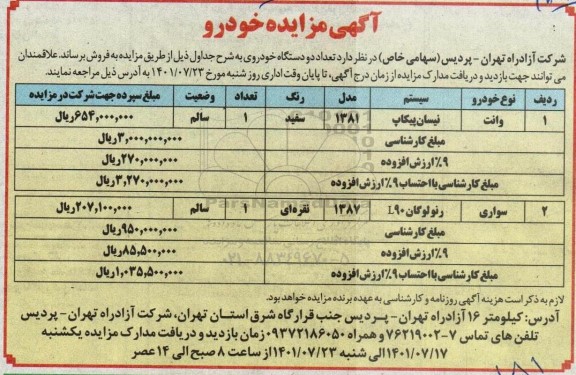 آگهی مزایده خودرو
شرکت آزادراه تهران - پردیس (سهامی خاص) در نظر دارد تعداد دو دستگاه خودروی به شرح جداول ذیل از طریق مزایده به فروش برساند. علاقمندان
می توانند جهت بازدید و دریافت مدارک مزایده از زمان درج آگهی، تا پایان وقت اداری روز شنبه مورخ ۱۴۰۱/۰۷/۲۳ به آدرس ذیل مراجعه نمایند.
ردیف نوع خودرو سیستم مدل رنگ تعداد وضعیت مبلغ سپرده جهت شرکت در مزایده
۱ وانت نیسان پیکاپ ۱۳۸۱ سفید ۱ سالم ۶۵۴,۰۰۰,۰۰۰ ریال
مبلغ کارشناسی ۳,۰۰۰,۰۰۰,۰۰۰ ریال
۹٪ ارزش افزوده ۲۷۰,۰۰۰,۰۰۰ ریال
مبلغ کارشناسی با احتساب ۹٪ ارزش افزوده ۳,۲۷۰,۰۰۰,۰۰۰ ریال
۲ سواری رنو لوگان L۹۰ ۱۳۸۷ نقره‌ای ۱ سالم ۲۰۷,۱۰۰,۰۰۰ ریال
مبلغ کارشناسی ۹۵۰,۰۰۰,۰۰۰ ریال
۹٪ ارزش افزوده ۸۵,۵۰۰,۰۰۰ ریال
مبلغ کارشناسی با احتساب ۹٪ ارزش افزوده ۱,۰۳۵,۵۰۰,۰۰۰ ریال
لازم به ذکر است هزینه آگهی روزنامه و کارشناسی به عهده برنده مزایده خواهد بود.
آدرس: کیلومتر ۱۶ آزادراه تهران - پردیس جنب قرارگاه شرق استان تهران، شرکت آزادراه تهران - پردیس
تلفن های تماس ۷-۷۶۲۱۹۰۰۲ و همراه ۰۹۳۷۲۱۸۶۰۵۰ زمان بازدید و دریافت مدارک مزایده یکشنبه
۱۴۰۱/۰۷/۱۷ الی شنبه ۱۴۰۱/۰۷/۲۳ از ساعت ۸ صبح الی ۱۴ عصر